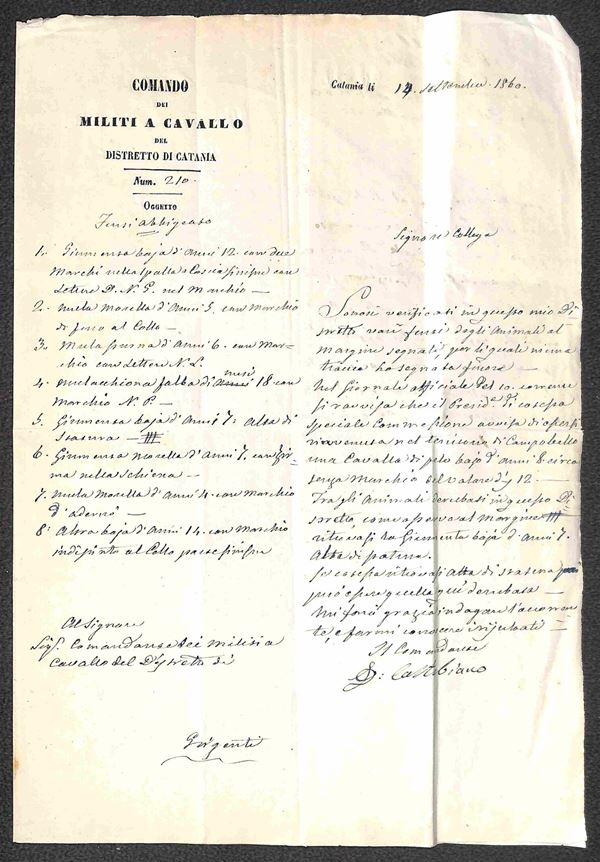 COMANDO
DEI
MILITI A CAVALLO
DEL
DISTRETTO DI CATANIA
Num. 210.
OGGETTO
Furti abbigeato
1. Giumenta baja d'anni 12. con due
Marchi nella spalla e Coscia sinistre con
Lettere D. N. G. nel Marchio —
2. mula Morella d'Anni 5. con Marchio
di ferro al Collo —
3. Mula d'Anni 6. con Mar-
chio con Lettere N. L.
4. Mulacchiona falba di mesi 18 con
Marchio N. P. —
5. Giumenta baja d'Anni 7: Alta di
Statura —
6. Giumenta morella d'Anni 7. con
nella schiena —
7. Mula Morella d'Anni 4. con Marchio
d'Adernò —
8: Altra baja d'Anni 14. con Marchio
indistinto al Collo parte sinistra
Al Signore
Sig. Comandante dei Militi a
Cavallo del Distretto di
Girgenti
Catania li 14 settembre 1860.
Signore Collega
Sonosi verificati in questo mio Di-
stretto varii furti degli Animali al
Margine segnati, per li quali niuna
traccia ho segnata finora —
Nel Giornale officiale del 10. corrente
si ravvisa che il Presid.e di cotesta
speciale Commessione avvisa di essersi
rinvenuta nel territorio di Campobello
una Cavalla di pelo bajo d'anni 8 circa
senza Marchio del valore di 12 —
Tra gli Animali derubati in questo Di-
stretto, come osserva al Margine
ritrovasi la Giumenta baja d'anni 7.
Alta di statura.
Se cotesta ritrovasi Alta di statura
può essere quella quì derubata —
Mi farà grazia indagare l'occorren-
te, e farmi conoscere i risultati —
Il Comandante